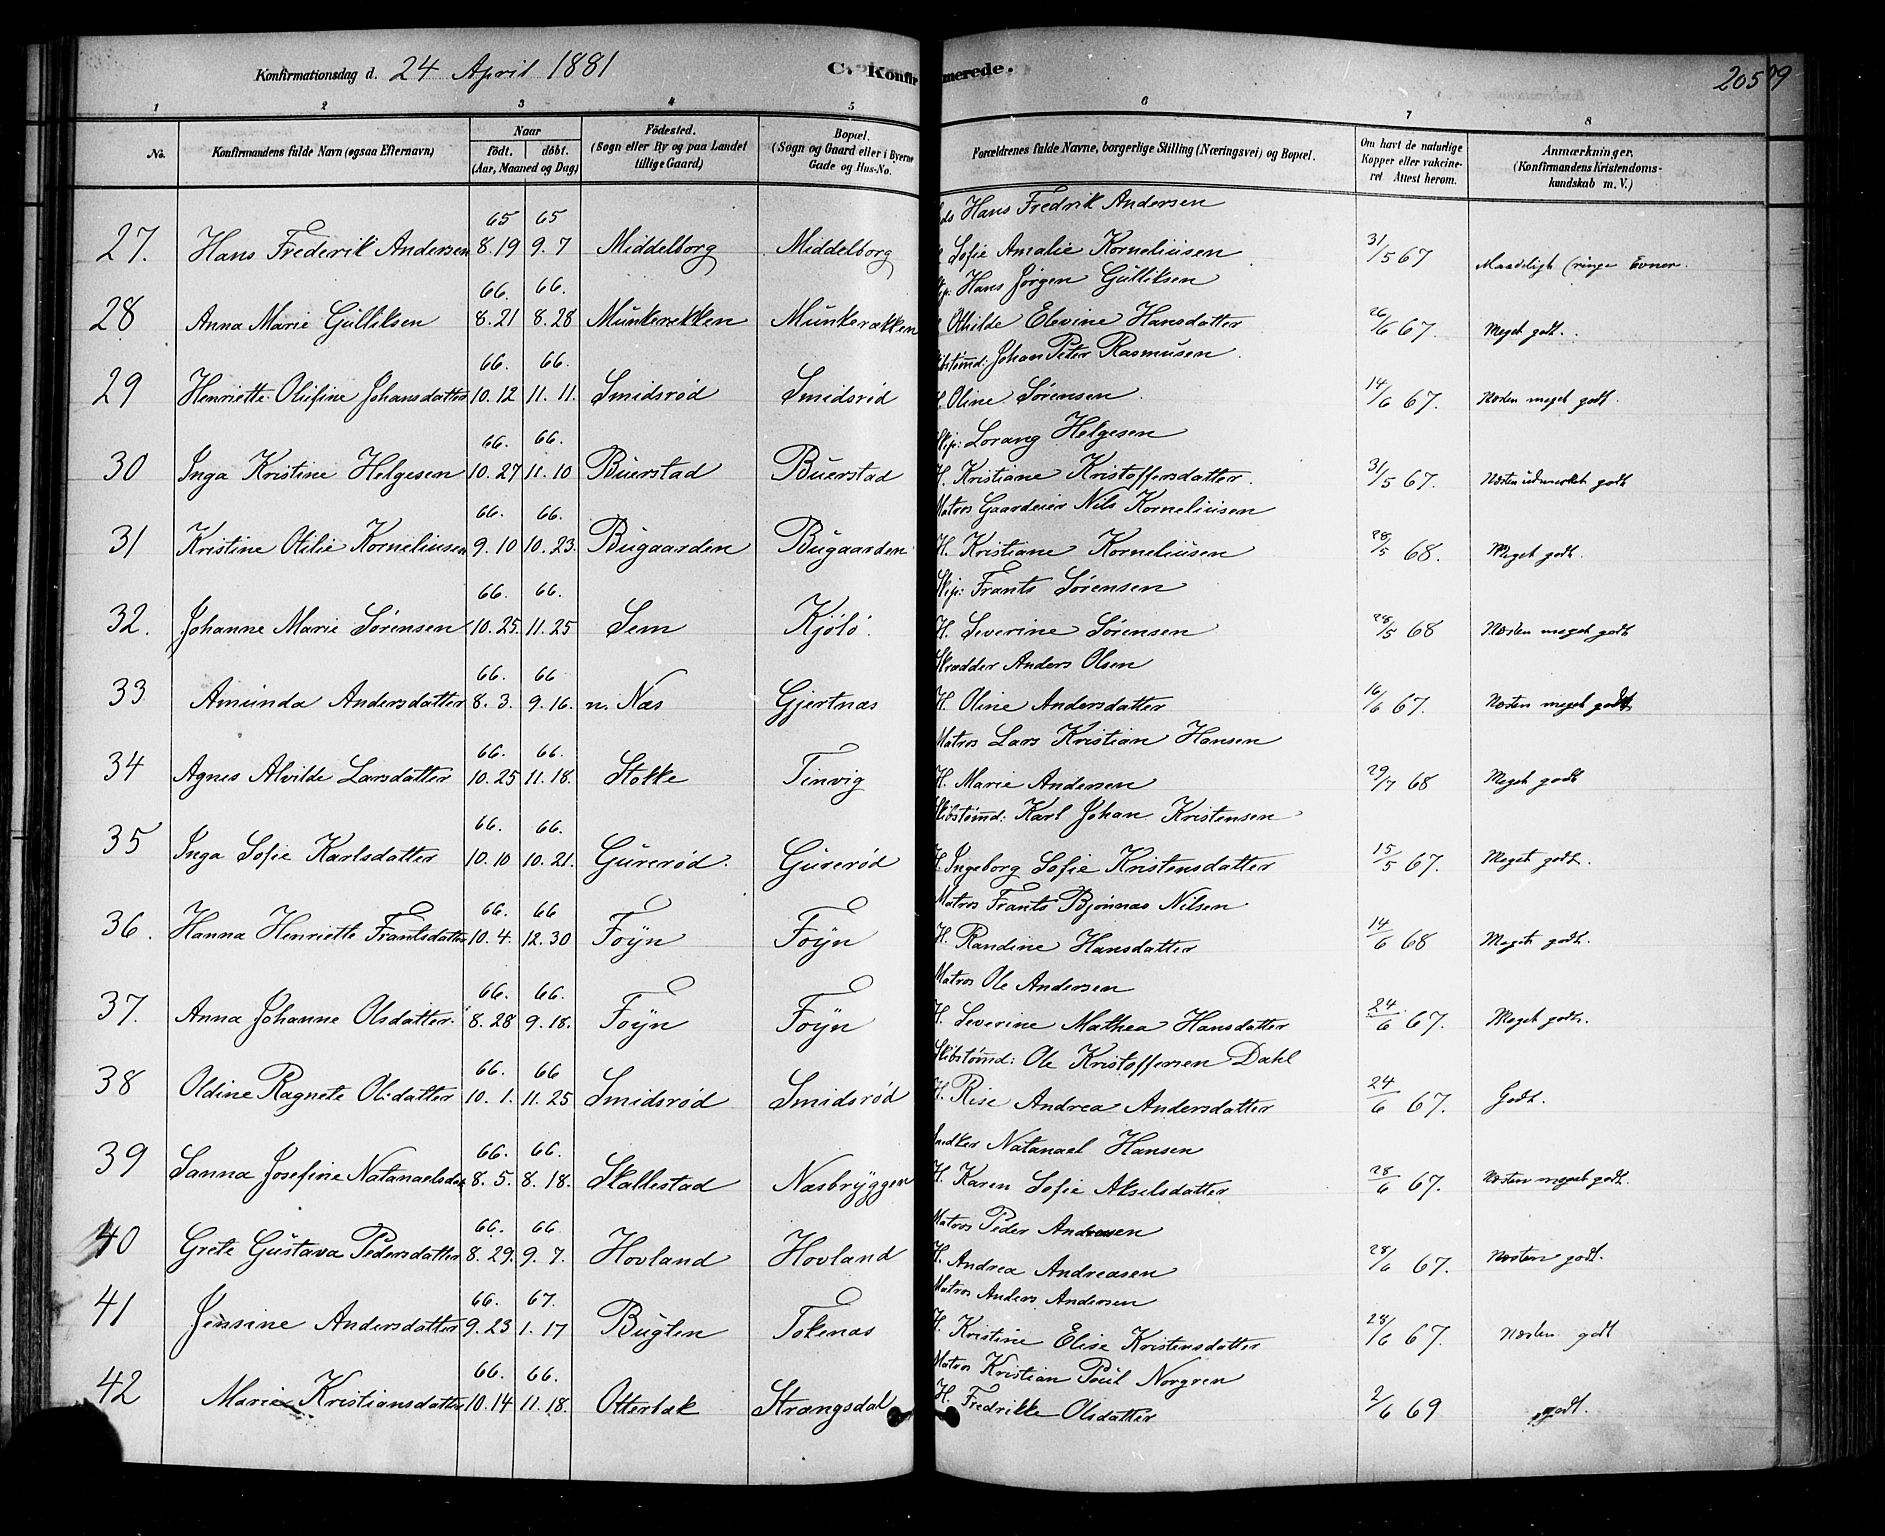 Konfirmationsdag d. 24 April 1881
C. Konfirmerede.
205
1 2 3 4 5 6 7 8
No. Konfirmandens fulde Navn (ogsaa Efternavn) Naar født. døbt. (Aar, Maaned og Dag) Fødested. (Sogn eller By og paa Landet tillige Gaard) Bopæl. (Sogn og Gaard eller i Byerne Gade og Hus-No. Forældrenes fulde Navne, borgerlige Stilling (Næringsvei) og Bopæl. Om havt de naturlige Kopper eller vakcineret Attest herom. Anmærkninger. (Konfirmandens Kristendomskundskab m. V.)
65 65 Hans Fredrik Andersen
27. Hans Frederik Andersen 8.19 9.7 Middelborg Middelborg Sofie Amalie Korneliusen 31/5 67 Maadeligt (ringe Evner.
66. 66. Skip: Hans Jørgen Gulliksen
28 Anna Marie Gulliksen 8.21 8.28 Munkerekken Munkerækken Othilde Elevine Hansdatter 26/6 67. Meget godt.
66. 66. Skibstømd: Johan Peter Rasmusen
29 Henriette Olufine Johansdatter 10.12 11.11. Smidsrød Smidsrød H. Oline Sørensen. 14/6 67. Næsten meget godt.
66. 66. Skip: Lorang Helgesen
30 Inga Kristine Helgesen 10.27 11.10 Buerstad Buerstad H. Kristiane Kristoffersdatter. 31/5 67. Næsten udmerket godt
66. 66. Matros Gaardeier Nils Korneliusen
31 Kristine Otilie Korneliusen 9.10 10.23. Bugaarden Bugaarden H. Kristiane Korneliusen 28/5 68. Meget godt.
66. 66. Skip: Frants Sørensen
32. Johanne Marie Sørensen 10.25. 11.25 Sem Kjölö. H. Severine Sørensen 28/5 68 Næsten meget godt
66. 66 Skrædder Anders Olsen
33 Amunda Andersdatter 8.3. 9.16. n. Næs Gjertnæs H. Oline Andersdatter 16/6 67. Næsten meget godt
66. 66. Matros Lars Kristian Hansen
34 Agnes Alvilde Larsdatter 10.25 11.18. Stokke Tinvig H. Marie Andersen 29/7 68 Meget godt
66. 66. Skibstømd: Karl Johan Kristensen
35 Inga Sofie Karlsdatter 10.10 10.21. Gurerød. Gurerød H. Ingeborg Sofie Kristensdatter 15/5 67. Meget godt.
66. 66 Matros Frants Bjønnæs Nilsen
36. Hanna Henriette Frantsdatter 10.4. 12.30 Foyn Foyn H. Randine Hansdatter 14/6 68 Meget godt.
66. 66. Matros Ole Andersen
37. Anna Johanne Olsdatter. 8.28 9.18. Foyn Foyn H. Severine Mathea Hansdatter 24/6 67. Meget godt.
66. 66 Skibstømd: Ole Kristoffersen Dahl
38 Oldine Ragnete Olsdatter 10.1. 11.25 Smidsrød Smidsrød H. Rise Andrea Andersdatter 24/6 67. Godt.
66. 66. Snedker Natanael Hansen
39 Sanna Josefine Natanaelsdat 8.5. 8.18. Skallestad Næsbryggen H. Karen Sofie Akselsdatter 28/6 67. Næsten meget godt.
66. 66 Matros Peder Andreasen
40 Grete Gustava Pedersdatter 8.29. 9.7. Hovland Hovland H. Andrea Andreasen 28/6 67. Næsten godt.
66. 67. Matros Anders Andersen
41 Jensine Andersdatter 9.23 1.17 Bugten Tokenæs H. Kristine Elise Kristensdatter 28/6 67. Næsten godt
66. 66. Matros Kristian Poul Norgren
42 Marie Kristiansdatter 10.14 11.18. Otterbæk Strangsdal H. Fredrikke Olsdatter 2/6 69 godt.